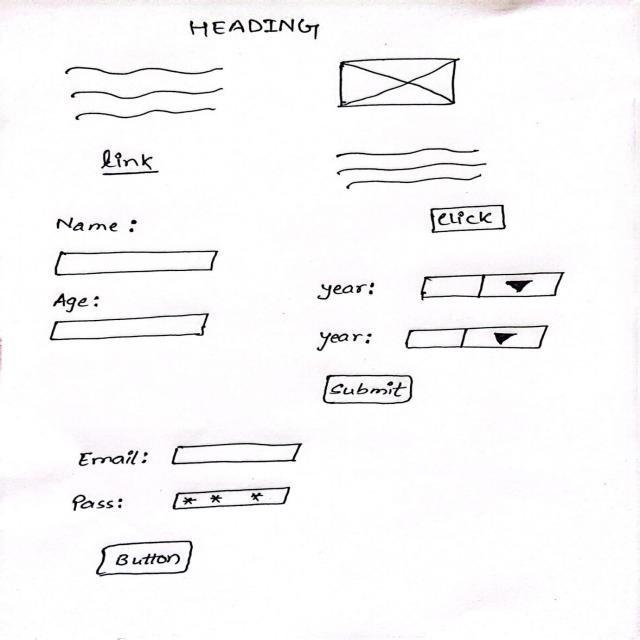 HEADING
link
Name :
Click
Age:
year:
year:
Submit
Email:
Pass: * * *
Button